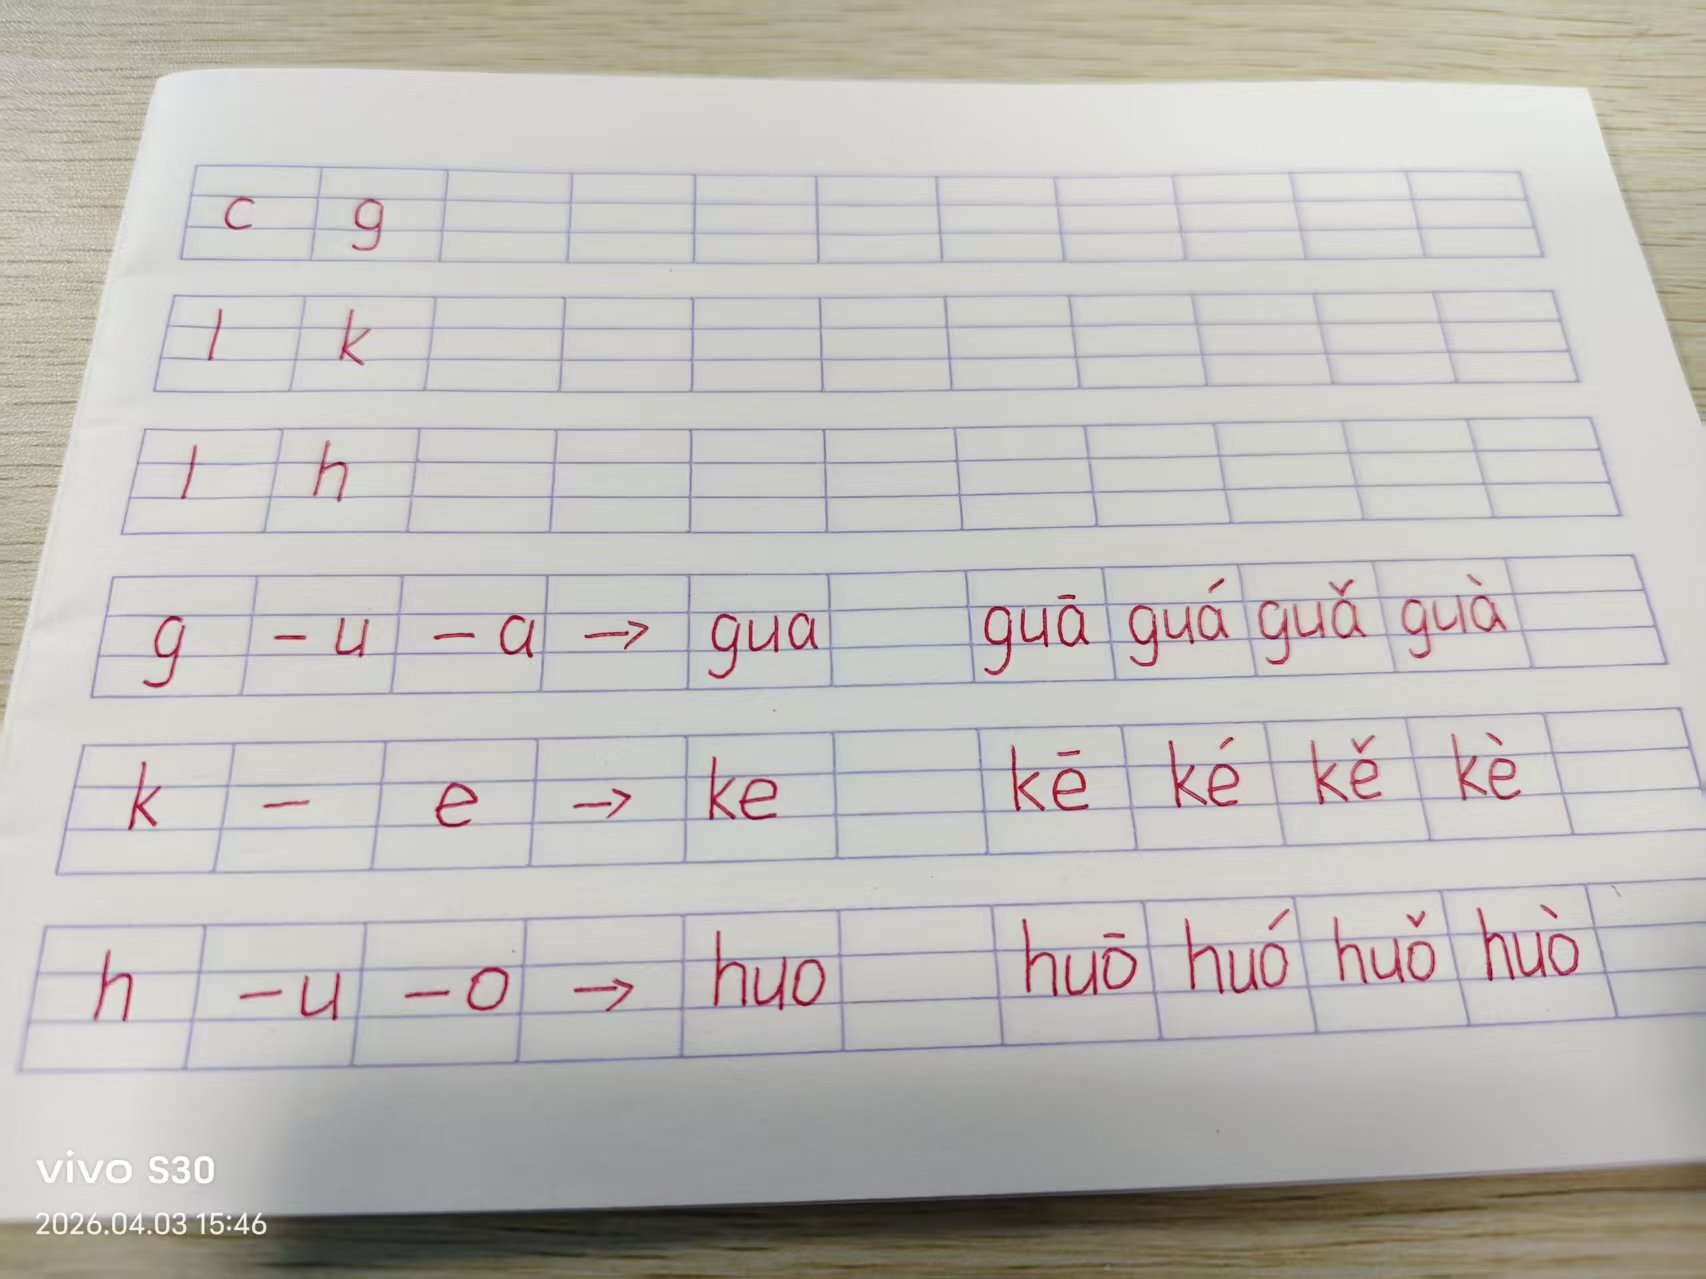 c g
l k
l h
g - u - a → gua guā guá guǎ guà
k - e → ke kē ké kě kè
h - u - o → huo huō huó huǒ huò
vivo S30
2026.04.03 15:46